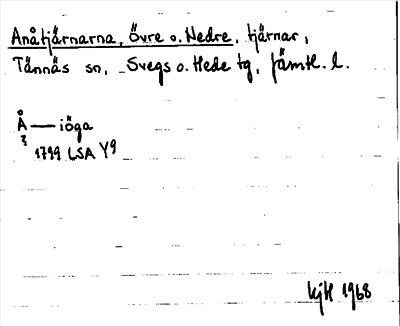 Anåtjärnarna, Övre o. Nedre, tjärnar,
Tännäs sn, Svegs o. Hede tg, Jämtl. l.
Å — iöga
1799 LSA Y9
KjH 1968